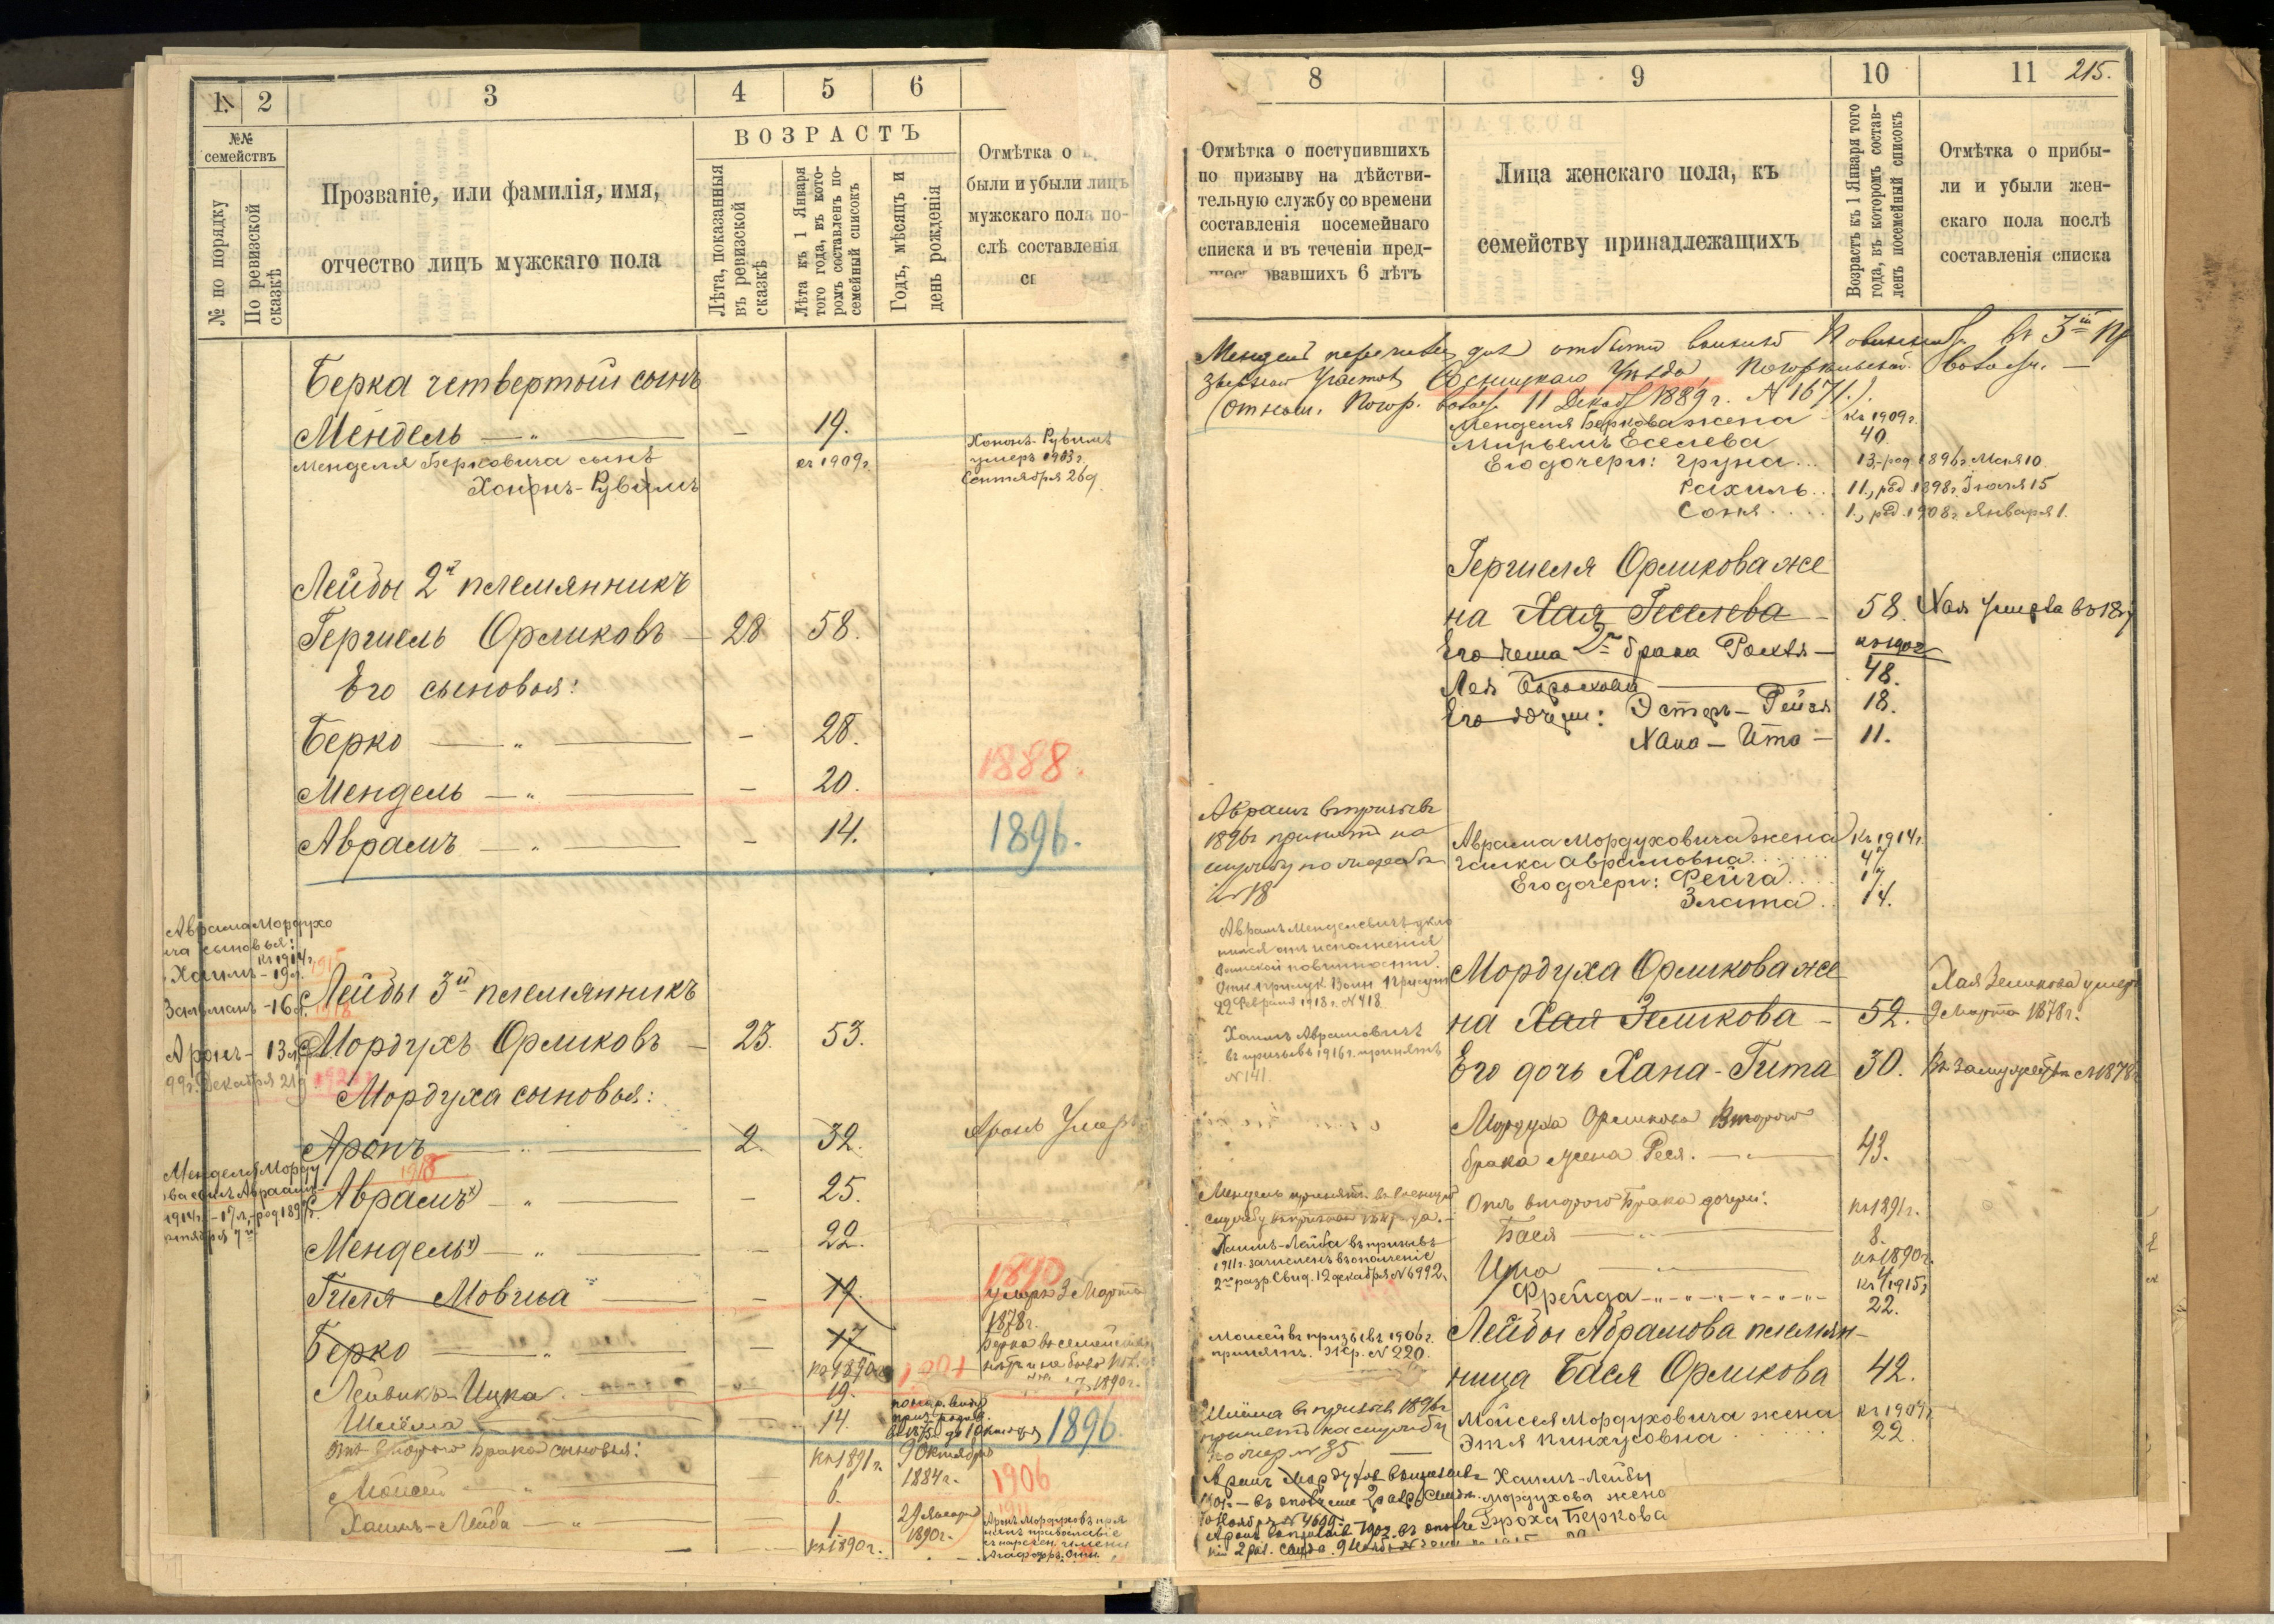 1. 2 3 4 5 6
№№ семействъ
№ по порядку
По ревизской сказкѣ
Прозваніе, или фамилія, имя,
отчество лицъ мужскаго пола
ВОЗРАСТЪ
Лѣта, показанныя въ ревизской сказкѣ
Лѣта къ 1 Января того года, въ кото-ромъ составленъ по-семейный списокъ
Годъ, мѣсяцъ и день рожденія
Отмѣтка о
были и убыли лицъ
мужскаго пола по-
слѣ составленія
Берка четвертый сынъ
Мендель — „ — - 19.
Менделя Берковича сынъ къ 1909г.
Хононъ-Рувимъ
Хононъ-Рувимъ
умеръ 1903г.
Сентября 26д
Лейбы 2й племянникъ
Гершель Орликовъ - 28 58.
Его сыновья:
Берко — „ — - 28.
Мендель — „ — - 20. 1888.
Аврамъ — „ — - 14. 1896.
Аврама Мордухо
ча сыновья:
къ 1914г.
Хаимъ - 19л. 1915
Залманъ - 16л. 1918
Аронъ - 13л.
99г. Декабря 21д
Лейбы 3й племянникъ
Мордухъ Орликовъ - 23. 53.
Мордуха сыновья:
Аронъ — „ — 2. 32. Аронъ Умеръ
Менделя Морду
ова сынъ Авраамъ
1914г. - 17л, род 189
1918
Аврамъ — „ — - 25.
Мендель — „ — - 22.
Гиля Мовша — - 19. 1890
умеръ 3 Марта
1878г.
Берко — „ — - 17
Берка въ семействѣ
къ 1890
Лейвикъ-Ицка 19.
1890г.
Шлёма 14. 1896.
Отъ второго брака сыновья: къ 1891г.
Мойсей — „ — 6. 9 Октября
1884г. 1906
Хаимъ-Лейба — „ — 1 29 Января
1890г.
къ 1890г.
Аронъ Мордуховъ при
нялъ православіе
съ нареченіемъ имени
8 9 10 11 215.
Отмѣтка о поступившихъ
по призыву на дѣйстви-
тельную службу со времени
составленія посемейнаго
списка и въ теченіи пред-
шествовавшихъ 6 лѣтъ
Лица женскаго пола, къ
семейству принадлежащихъ
Возрастъ къ 1 Января того года, въ которомъ состав-ленъ посемейный списокъ
Отмѣтка о прибы-
ли и убыли жен-
скаго пола послѣ
составленія списка
Мендель перечисленъ для отбытія воинской Повинности въ 3й
Участокъ Сосницкаго Уѣзда,
11 Декабря 1889г. № 1671.
Менделя Беркова жена къ 1909г.
Мирьемъ Еселева 40.
Его дочери: Груна... 13, род 1896г. Мая 10.
Рахиль.. 11, род 1898г. Іюля 15
Соня.... 1, род. 1908г. Января 1.
Гершеля Орликова же
на Хая Геселева - 58. Хая Умерла въ 18
Его жена 2го брака къ 1890г
Лея Борохова — 48.
Его дочери: Эстеръ-Рейзя 18.
Хана-Ита - 11.
Аврамъ въ призывъ
1896г принятъ на
службу по жеребью
№ 18
Аврама Мордуховича жена къ 1914г.
Галка Аврамовна..... 47
Его дочери: Фейга.... 17.
Злата.. 14.
Аврамъ Менделевичъ укло
нился отъ исполненія
воинской повинности.
22 Февраля 1918г. №418.
Хаимъ Аврамовичъ
въ призывъ 1916г. принятъ
№141.
Мордуха Орликова же
на Хая Зеликова - 52.
Хая Зеликова умер
9 Марта 1878г.
Его дочь Хана-Гита 30. Въ замужествѣ съ 1878г
Мордуха Орликова Второго
брака жена Рея. — 43.
Мендель принятъ въ военную
службу
Отъ второго брака дочери: къ 1891г.
Бася — 8.
Хаимъ-Лейба въ призывъ
1911г. зачисленъ въ ополченіе
2го разр. Свид. 12 декабря №6992.
къ 1890г.
4
Фрейда — къ 1915г.
22.
Мойсей въ призывъ 1906г.
принятъ. Жер. № 220.
Лейбы Абрамова племян-
ница Бася Орликова 42.
Шлёма въ призывъ 1896г
принятъ на службу
по жер № 35
Мойсея Мордуховича жена къ 1909г
Этля Пинхусовна 22.
Хаимъ-Лейбы
Мордухова жена
Броха Беркова